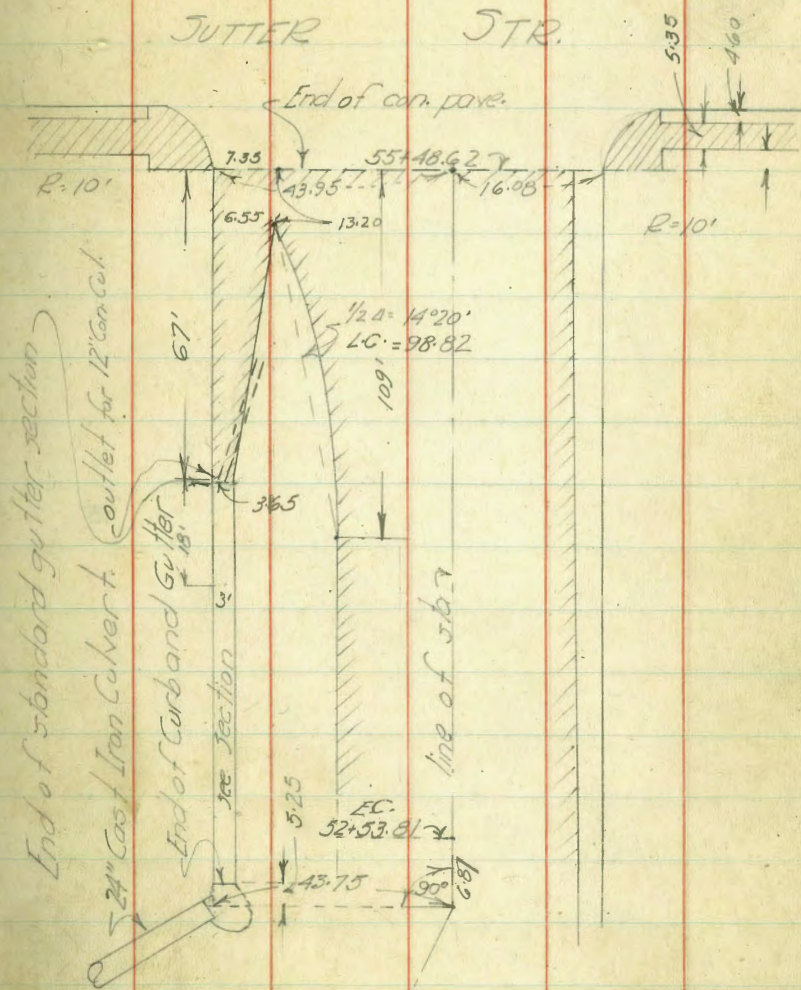 SUTTER STR.
5.35
4.60
End of con. pave.
7.35
55+48.62
R=10'
43.95
16.08
6.55
13.20
R=10'
67'
1/2 Δ = 14°20'
L.C. = 98.82
109'
End of standard gutter section
outlet for 12" Con. Cul.
3.65
18'
24" Cast Iron Culvert.
End of Curb and Gutter
3
see section
line of sta
5.25
E.C.
52+53.81
43.75
90°
6.87